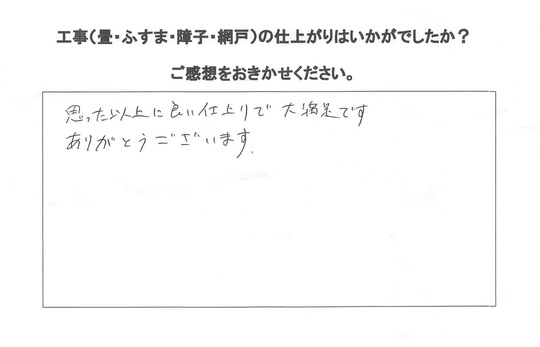 工事(畳・ふすま・障子・網戸)の仕上がりはいかがでしたか?
ご感想をおきかせください。
思った以上に良い仕上りで大満足です
ありがとうございます.